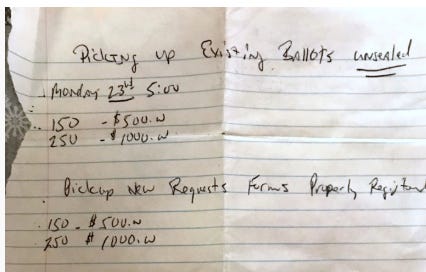 Picking up Existing Ballots unsealed
Monday 23rd 5:00
150 - $500.00
250 - $1000.00
Pickup New Requests Forms Properly
150 - $500.00
250 $1000.00